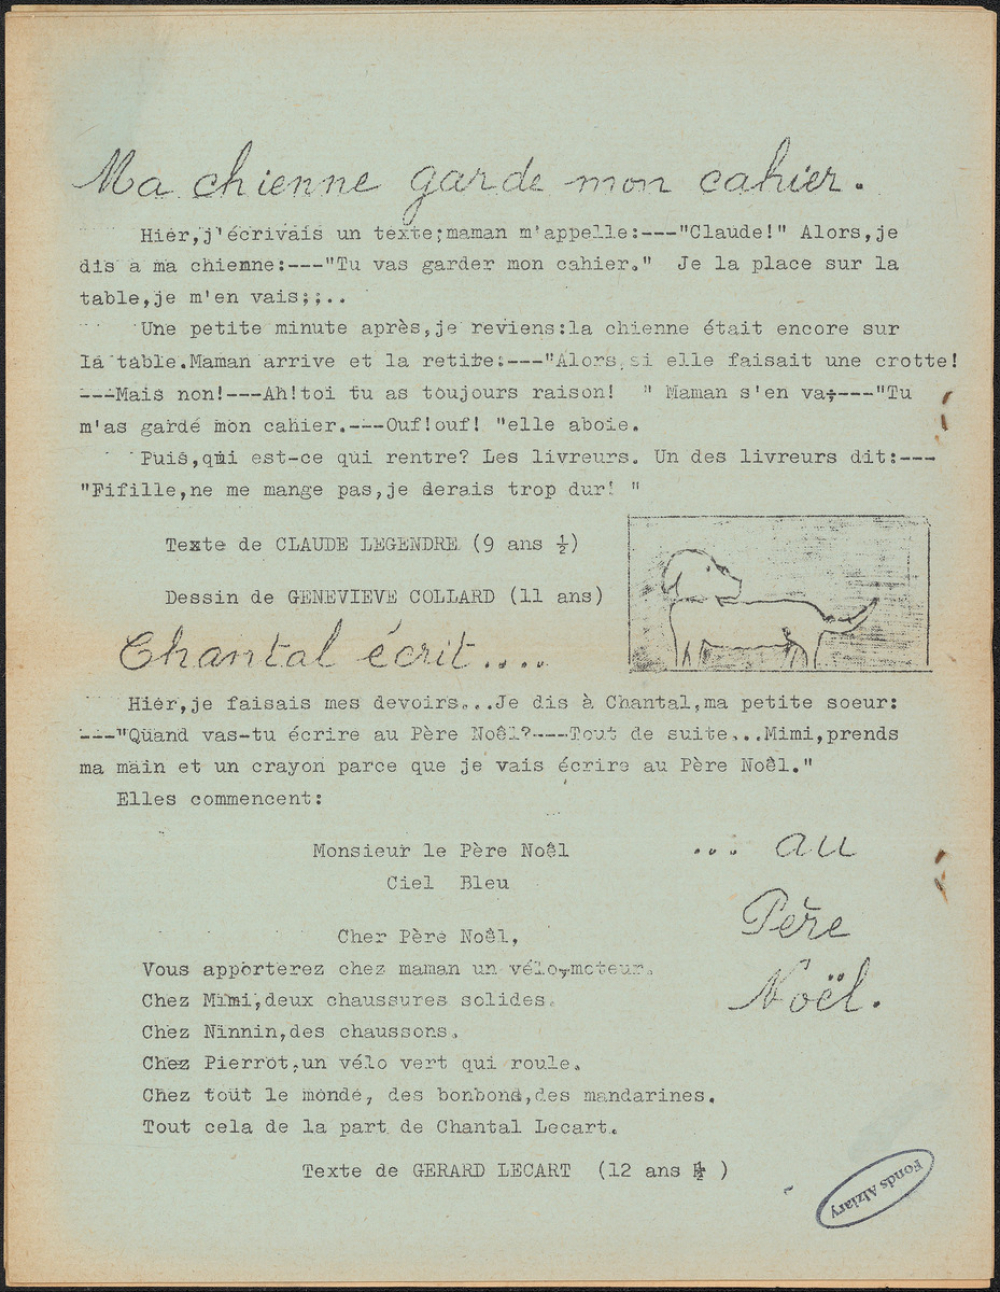 Ma chienne garde mon cahier.
Hier,j'écrivais un texte;maman m'appelle:---"Claude!" Alors,je
dis a ma chienne:---"Tu vas garder mon cahier." Je la place sur la
table,je m'en vais;;..
Une petite minute après,je reviens:la chienne était encore sur
la table.Maman arrive et la retire:---"Alors,si elle faisait une crotte!
---Mais non!---Ah!toi tu as toujours raison! " Maman s'en va;---"Tu
m'as gardé mon cahier.---Ouf!ouf! "elle aboie.
Puis,qui est-ce qui rentre? Les livreurs. Un des livreurs dit:---
"Fifille,ne me mange pas,je serais trop dur! "
Texte de CLAUDE LEGENDRE (9 ans ½)
Dessin de GENEVIEVE COLLARD (11 ans)
Chantal écrit....
Hier,je faisais mes devoirs...Je dis à Chantal,ma petite soeur:
---"Quand vas-tu écrire au Père Noêl?----Tout de suite...Mimi,prends
ma main et un crayon parce que je vais écrire au Père Noêl."
Elles commencent:
Monsieur le Père Noêl
Ciel Bleu
... au
Père
Noël.
Cher Père Noêl,
Vous apporterez chez maman un vélo-moteur.
Chez Mimi,deux chaussures solides.
Chez Ninnin,des chaussons.
Chez Pierrot,un vélo vert qui roule.
Chez tout le monde, des bonbons,des mandarines.
Tout cela de la part de Chantal Lecart.
Texte de GERARD LECART (12 ans )
Fonds Alziary